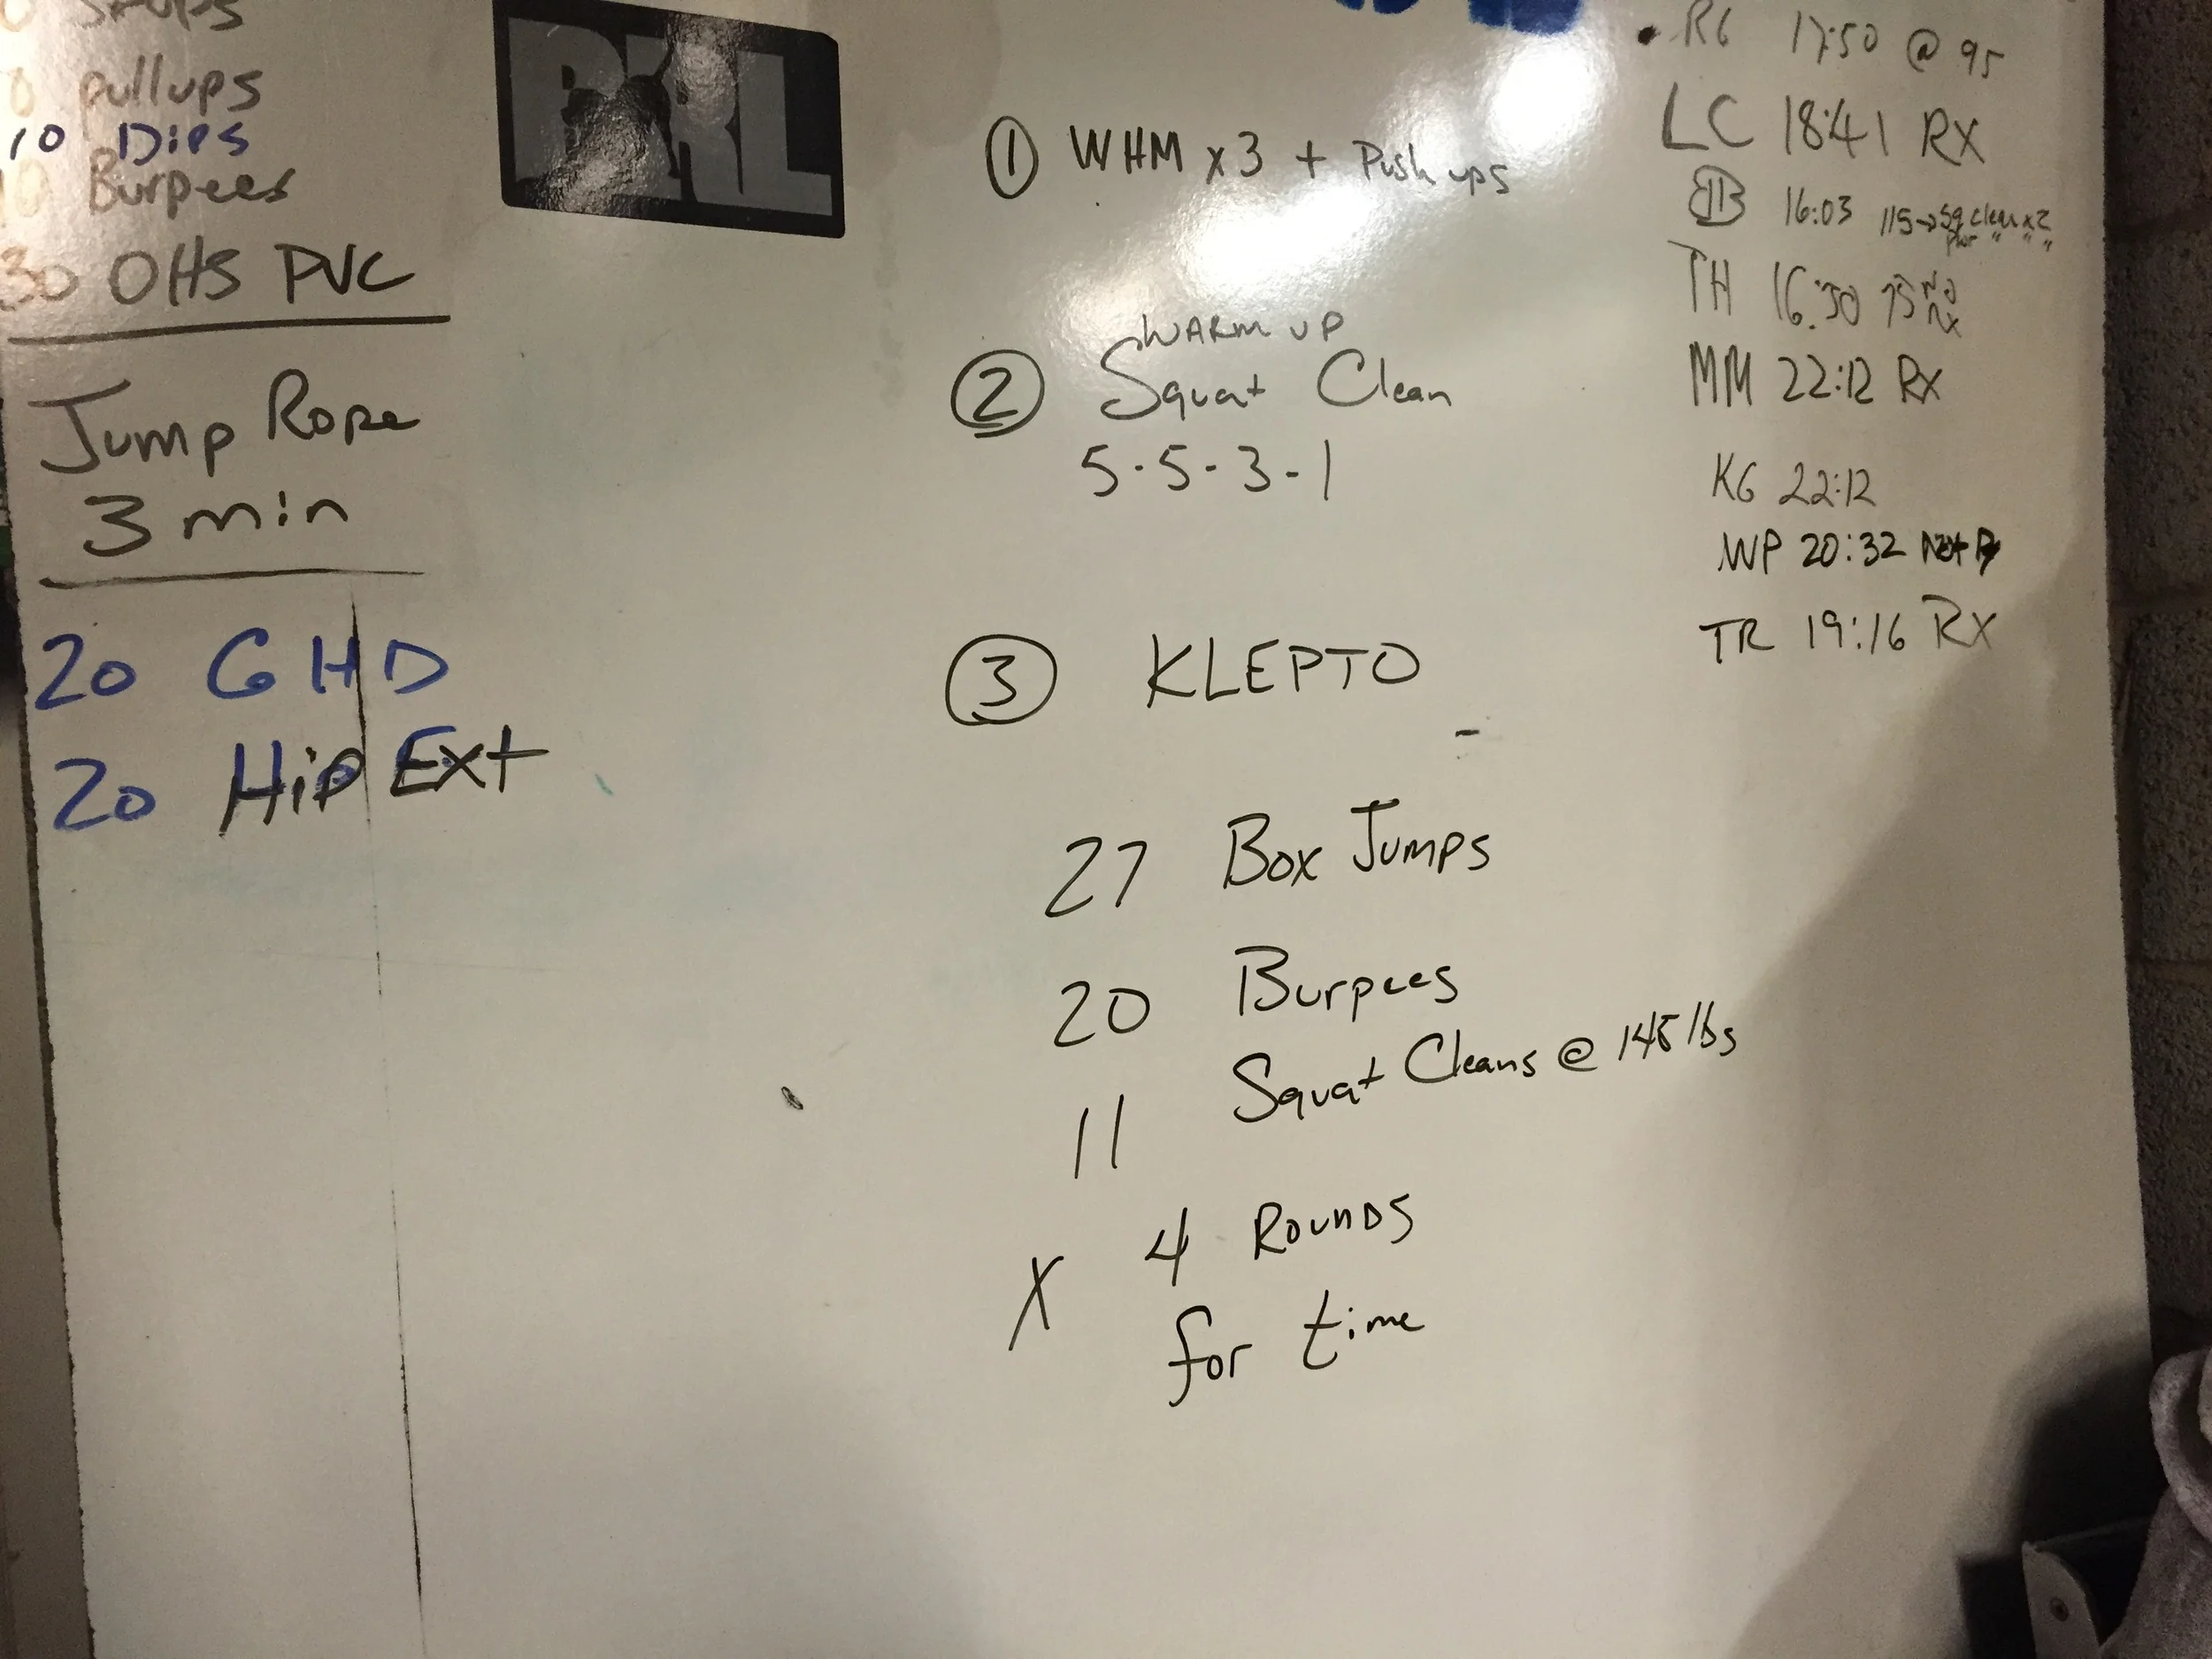 situps
pullups
10 Dips
Burpees
30 OHS PVC
Jump Rope
3 min
20 GHD
20 Hip Ext
① WHM x 3 + Push ups
WARM UP
② Squat Clean
5-5-3-1
③ KLEPTO
27 Box Jumps
20 Burpees
11 Squat Cleans @ 145 lbs
X 4 Rounds
for time
RG 17:50 @ 95
LC 18:41 RX
16:03 115→Sq clean x 2
pwr " " "
TH 16:30 75 No Rx
MM 22:12 RX
KG 22:12
WP 20:32 Not R
TR 19:16 RX